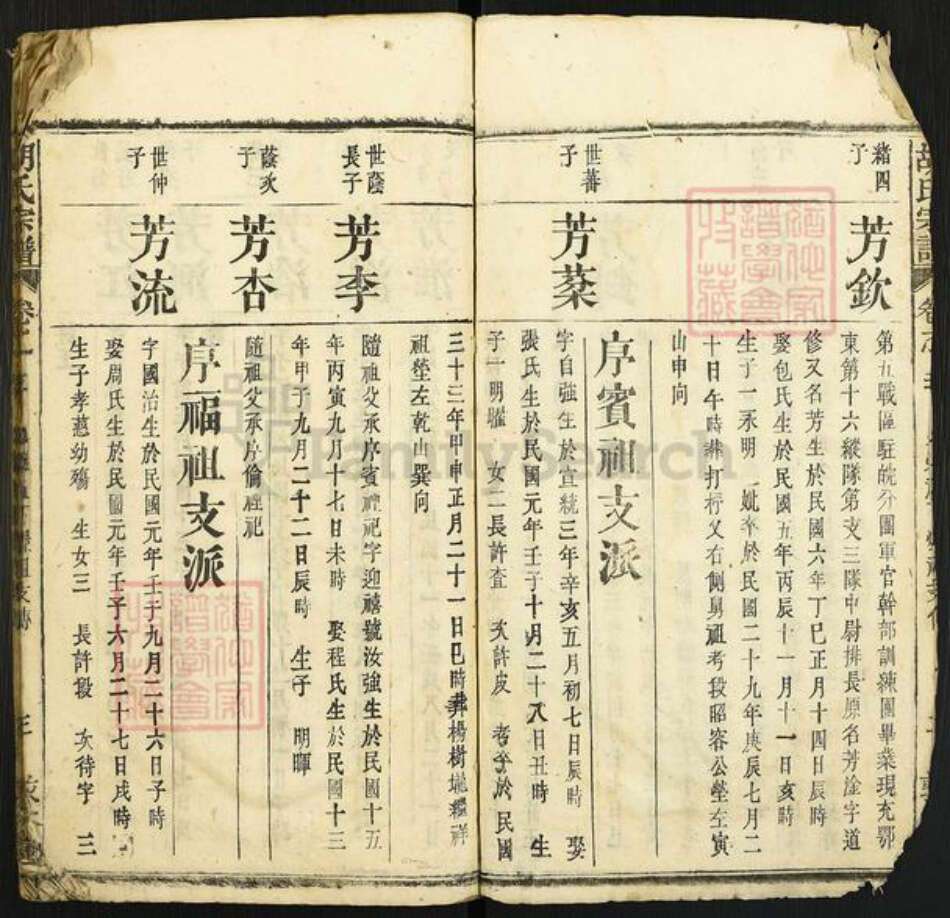 胡氏宗譜
緒四子
芳欽
第五戰區駐皖分團軍官幹部訓練團畢業現充鄂
東第十六縱隊第支三隊中尉排長原名芳淦字道
修又名芳生於民國六年丁巳正月十四日辰時
娶包氏生於民國五年丙辰十一月十一日亥時
生子一永明 妣卒於民國二十九年庚辰七月二
十日午時葬打杼又右側舅祖考段昭容公塋左寅
山申向
序賓祖支派
世蕃子
芳棻
字自強生於宣統三年辛亥五月初七日辰時 娶
張氏生於民國元年壬子十月二十八日丑時 生
子一明耀 女二長許査 次許皮 考卒於民國
三十三年甲申正月二十一日巳時葬楊樹壠繼祥
祖塋左乾山巽向
世蔭長子
芳李
隨祖父承序賓祖祀字迎禧號汝強生於民國十五
年丙寅九月十七日未時 娶程氏生於民國十三
年甲子九月二十二日辰時 生子 明暉
蔭次子
芳杏
隨祖父承序倫祖祀
序福祖支派
世仲子
芳流
字國治生於民國元年壬子九月二十六日子時
娶周氏生於民國元年壬子六月二十七日戌時
生子孝慈幼殤 生女三 長許段 次待字 三
胡氏宗譜
FamilySearch